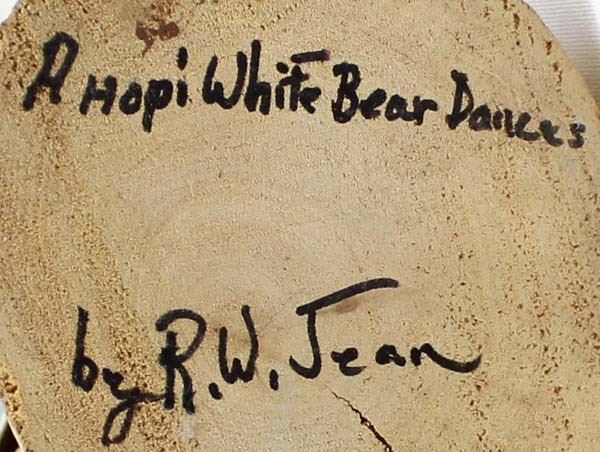 A Hopi White Bear Dances
by R.W. Jean